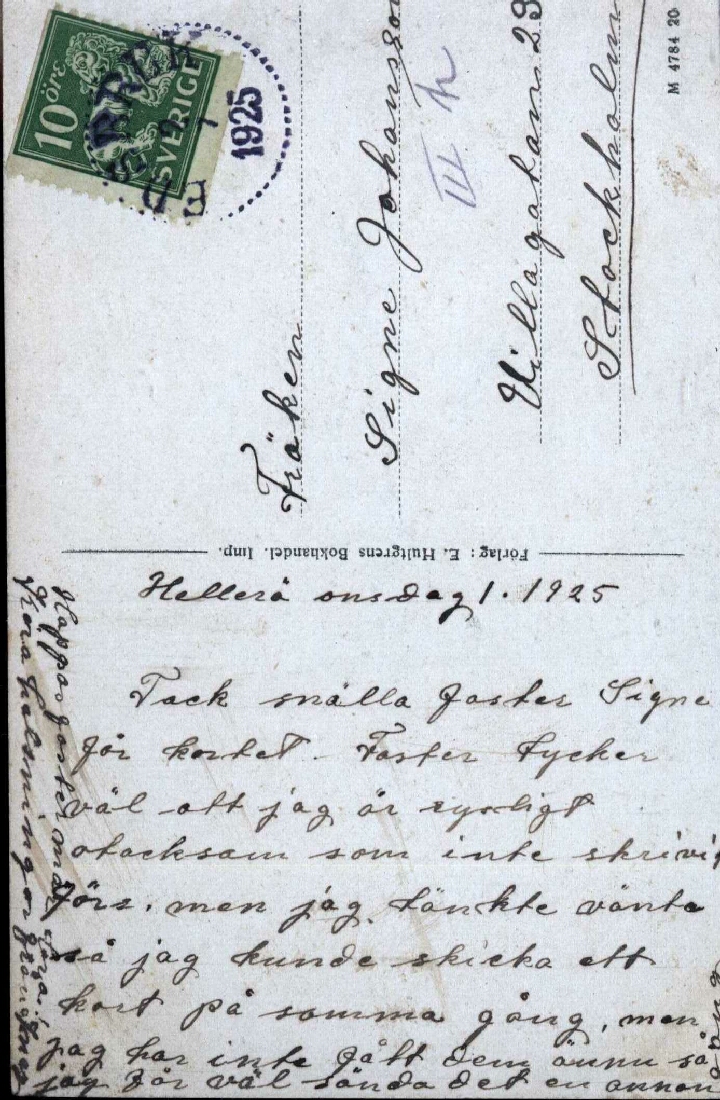 10 ÖRE
SVERIGE
1925
Fröken
Signe Johansson
III h
Villagatan 23
Stockholm
M 4784 20
Förlag: E. Hultgrens Bokhandel. Imp.
Hellerö onsdag 1. 1925
Tack snälla faster Signe
för kortet. Faster tycker
väl att jag är rysligt
otacksam som inte skrivit
förs. men jag tänkte vänta
så jag kunde skicka ett
kort på samma gång, men
jag har inte fått dem ännu så
jag får väl sända det en annan
Hoppas faster mår bra!
Kära hälsningar från